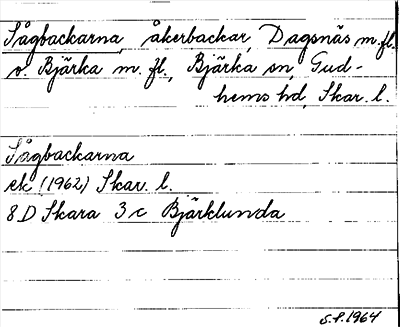 Sågbackarna, åkerbackar, Dagsnäs m. fl.
o. Bjärka m. fl., Bjärka sn, Gud-
hems hd, Skar. l.
Sågbackarna
ek (1962) Skar. l.
8D Skara 3c Bjärklunda
S.P. 1964